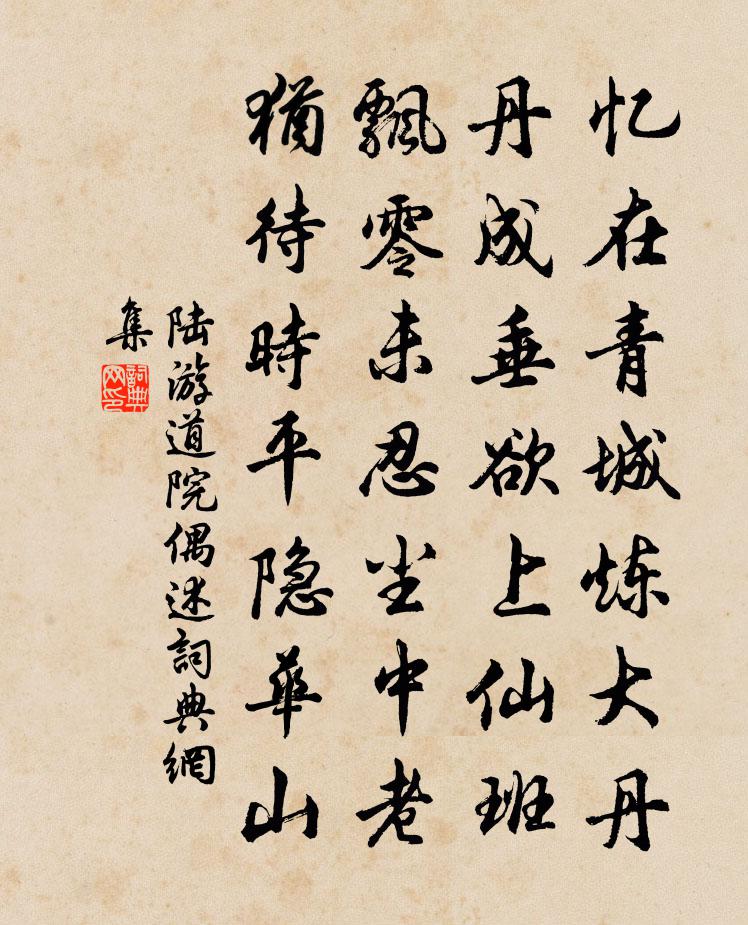 忆在青城炼大丹
丹成垂欲上仙班
飄零未忍尘中老
猶待時平隐華山
陆游道院偶述詞典網
集
詞典网印